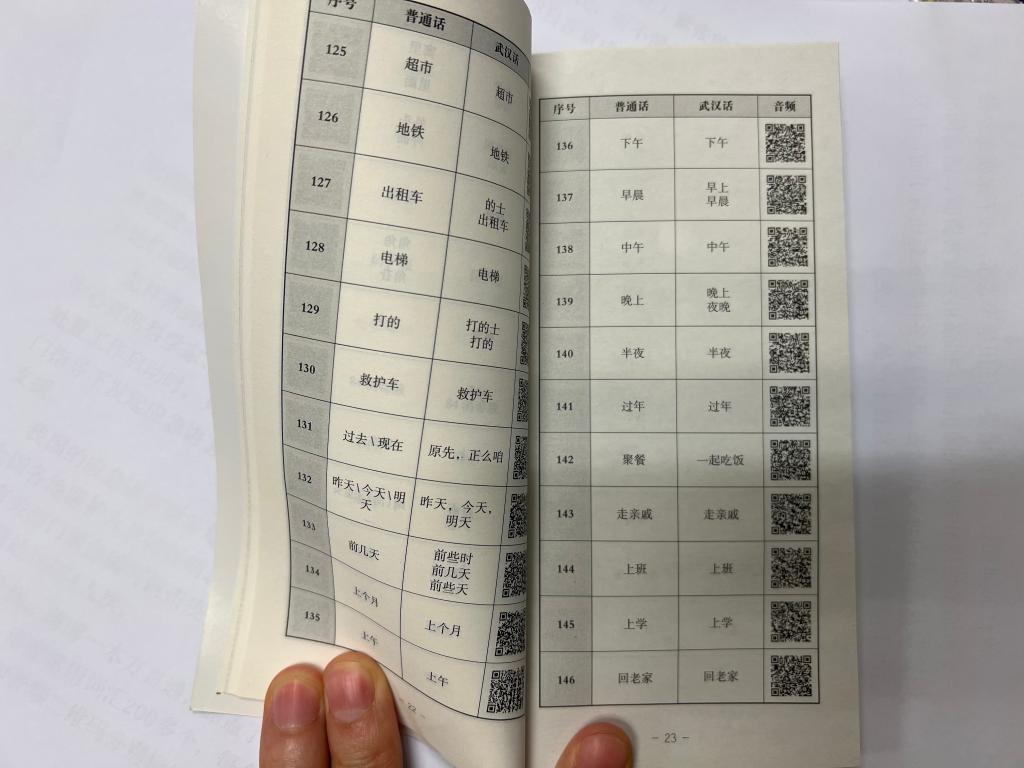 序号 普通话 武汉话
125 超市 超市
126 地铁 地铁
127 出租车 的士
出租车
128 电梯 电梯
129 打的 打的士
打的
130 救护车 救护车
131 过去\现在 原先，正么咱
132 昨天\今天\明 昨天，今天，
天 明天
133 前几天 前些时
前几天
前些天
134 上个月 上个月
135 上午 上午
- 22 -
序号 普通话 武汉话 音频
136 下午 下午
137 早晨 早上
早晨
138 中午 中午
139 晚上 晚上
夜晚
140 半夜 半夜
141 过年 过年
142 聚餐 一起吃饭
143 走亲戚 走亲戚
144 上班 上班
145 上学 上学
146 回老家 回老家
- 23 -